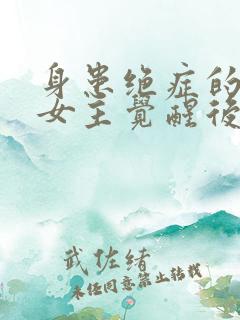 身患绝症的
女主觉醒后
武佐绪
未经同意禁止转载